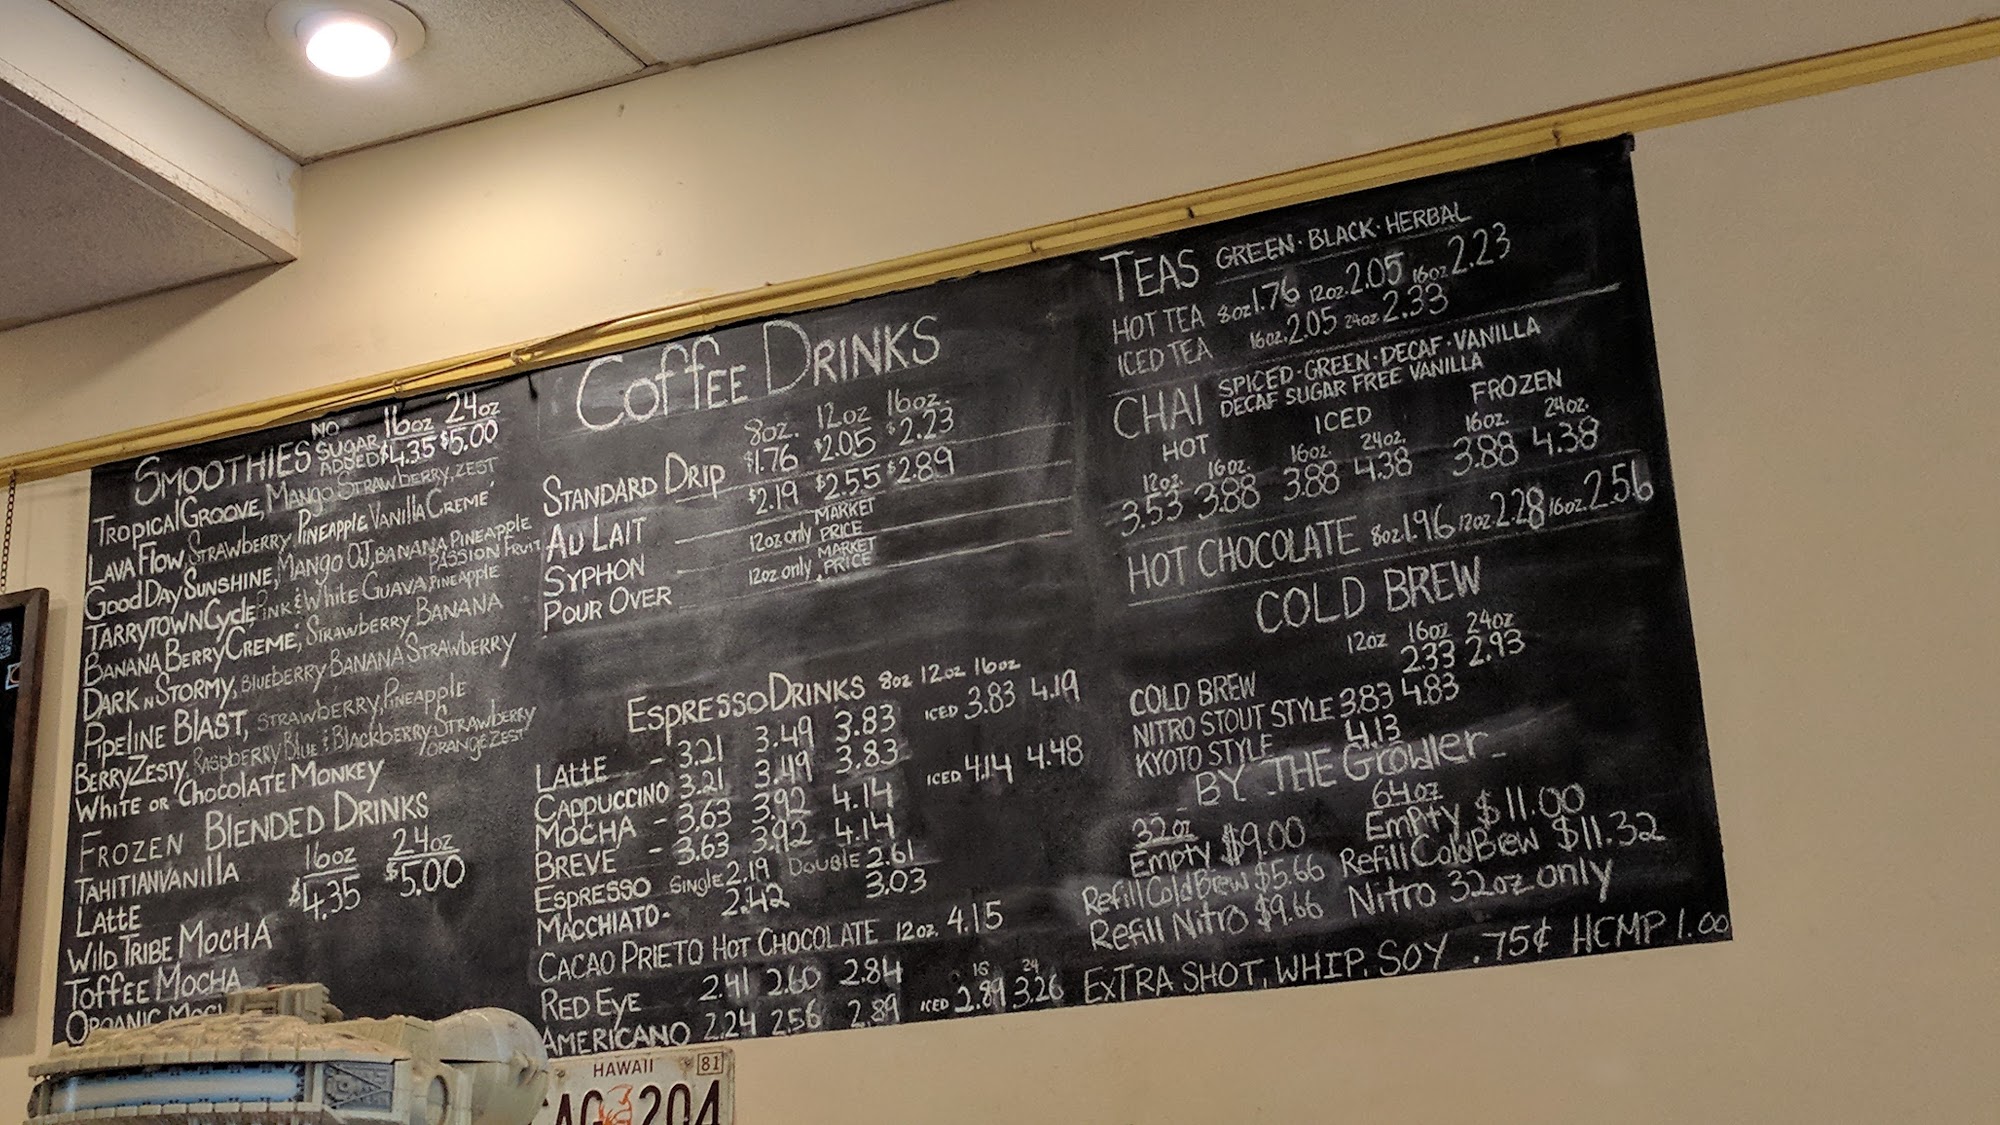 SMOOTHIES NO SUGAR ADDED 16oz $4.35 24oz $5.00
TROPICAL GROOVE, MANGO STRAWBERRY, ZEST
LAVA FLOW, STRAWBERRY PINEAPPLE, VANILLA CREME'
GOOD DAY SUNSHINE, MANGO OJ, BANANA, PINEAPPLE
TARRYTOWN CYCLE PINK & WHITE GUAVA, PINEAPPLE PASSION FRUIT
BANANA BERRY CREME', STRAWBERRY BANANA
DARK N STORMY, BLUEBERRY BANANA STRAWBERRY
PIPELINE BLAST, STRAWBERRY, PINEAPPLE
BERRY ZESTY, RASPBERRY BLUE & BLACKBERRY STRAWBERRY ORANGE ZEST
WHITE OR CHOCOLATE MONKEY
FROZEN BLENDED DRINKS
16oz 24oz
$4.35 $5.00
TAHITIAN VANILLA
LATTE
WILD TRIBE MOCHA
TOFFEE MOCHA
ORGANIC
COFFEE DRINKS
8oz. 12oz 16oz.
STANDARD DRIP $1.76 $2.05 $2.23
AU LAIT $2.19 $2.55 $2.89
SYPHON 12oz only MARKET PRICE
POUR OVER 12oz only MARKET PRICE
ESPRESSO DRINKS 8oz 12oz 16oz
LATTE - 3.21 3.49 3.83 ICED 3.83 4.19
CAPPUCCINO 3.21 3.49 3.83
MOCHA - 3.63 3.92 4.14 ICED 4.14 4.48
BREVE - 3.63 3.92 4.14
ESPRESSO SINGLE 2.19 DOUBLE 2.61
MACCHIATO- 2.42 3.03
CACAO PRIETO HOT CHOCOLATE 12oz. 4.15
RED EYE 2.41 2.60 2.84
16 24
AMERICANO 2.24 2.56 2.89 ICED 2.89 3.26
TEAS GREEN · BLACK · HERBAL
HOT TEA 8oz 1.76 12oz. 2.05 16oz 2.23
ICED TEA 16oz. 2.05 24oz 2.33
CHAI SPICED · GREEN · DECAF · VANILLA
DECAF SUGAR FREE VANILLA
HOT ICED FROZEN
12oz. 16oz. 16oz. 24oz. 16oz. 24oz.
3.53 3.88 3.88 4.38 3.88 4.38
HOT CHOCOLATE 8oz 1.96 12oz 2.28 16oz. 2.56
COLD BREW
12oz 16oz 24oz
COLD BREW 2.33 2.93
NITRO STOUT STYLE 3.83 4.83
KYOTO STYLE 4.13
- BY THE GROWLER -
32oz 64oz
EMPTY $9.00 EMPTY $11.00
Refill Cold Brew $5.66 Refill Cold Brew $11.32
Refill Nitro $9.66 Nitro 32oz only
EXTRA SHOT, WHIP, SOY .75¢ HCMP 1.00
HAWAII 81
204